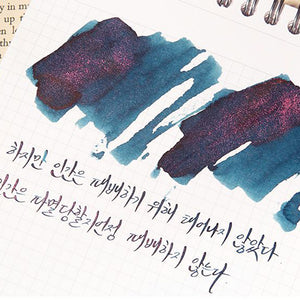 in my
하지만 인간은 패배하기 위해 태어나지 않았다
인간은 파멸당할지언정 패배하지 않는다